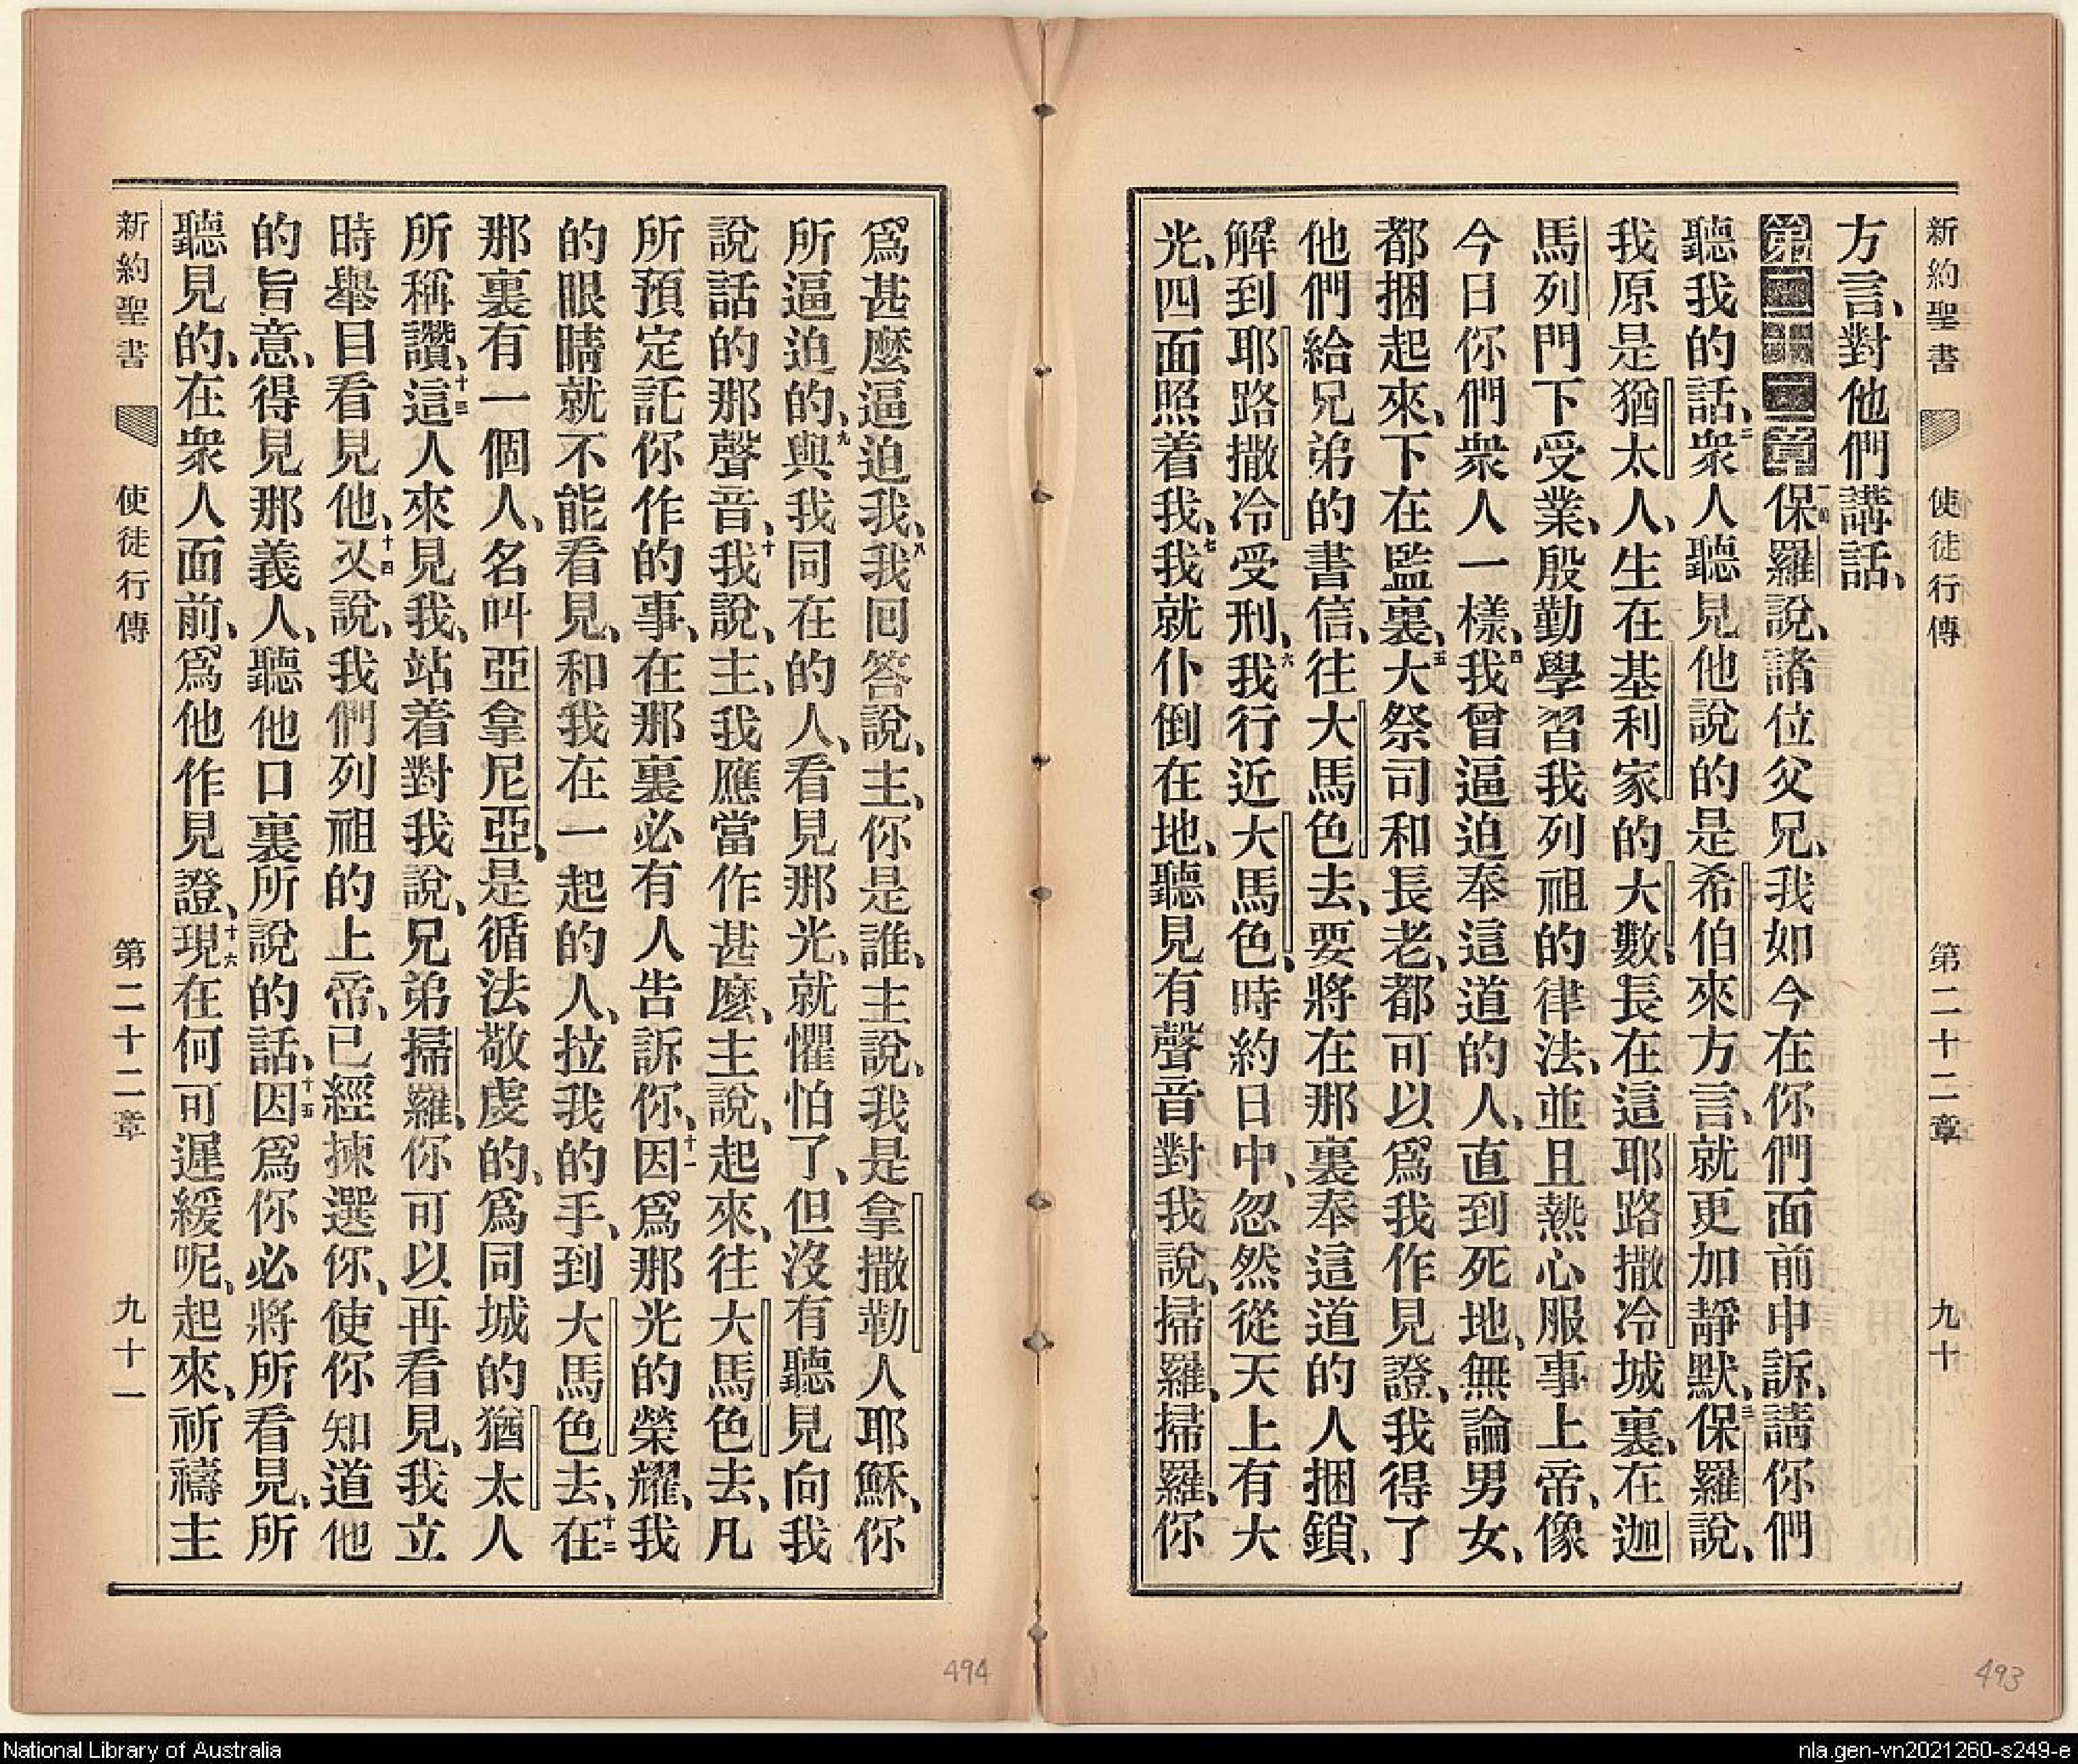 新約聖書 使徒行傳 第二十二章 九十
方言、對他們講話、
第二十二章 一保羅說、諸位父兄、我如今在你們面前申訴、請你們
聽我的話、二衆人聽見他說的是希伯來方言、就更加靜默、三保羅說、
我原是猶太人、生在基利家的大數、長在這耶路撒冷城裏、在迦
馬列門下受業、殷勤學習我列祖的律法、並且熱心服事上帝、像
今日你們衆人一樣、四我曾逼迫奉這道的人、直到死地、無論男女、
都捆起來、下在監裏、五大祭司和長老、都可以爲我作見證、我得了
他們給兄弟的書信、往大馬色去、要將在那裏奉這道的人捆鎖、
解到耶路撒冷受刑、六我行近大馬色、時約日中、忽然從天上有大
光、四面照着我、七我就仆倒在地、聽見有聲音對我說、掃羅、掃羅、你
爲甚麼逼迫我、八我回答說、主、你是誰、主說、我是拿撒勒人耶穌、你
所逼迫的、九與我同在的人、看見那光、就懼怕了、但沒有聽見向我
說話的那聲音、十我說、主、我應當作甚麼、主說、起來、往大馬色去、凡
所預定託你作的事、在那裏必有人告訴你、十一因爲那光的榮耀、我
的眼睛就不能看見、和我在一起的人、拉我的手、到大馬色去、十二在
那裏有一個人、名叫亞拿尼亞、是循法敬虔的、爲同城的猶太人
所稱讚、十三這人來見我、站着對我說、兄弟掃羅、你可以再看見、我立
時舉目看見他、十四又說、我們列祖的上帝、已經揀選你、使你知道他
的旨意、得見那義人、聽他口裏所說的話、十五因爲你必將所看見、所
聽見的、在衆人面前、爲他作見證、十六現在何可遲緩呢、起來、祈禱主
新約聖書 使徒行傳 第二十二章 九十一
493
494
National Library of Australia
nla.gen-vn2021260-s249-e